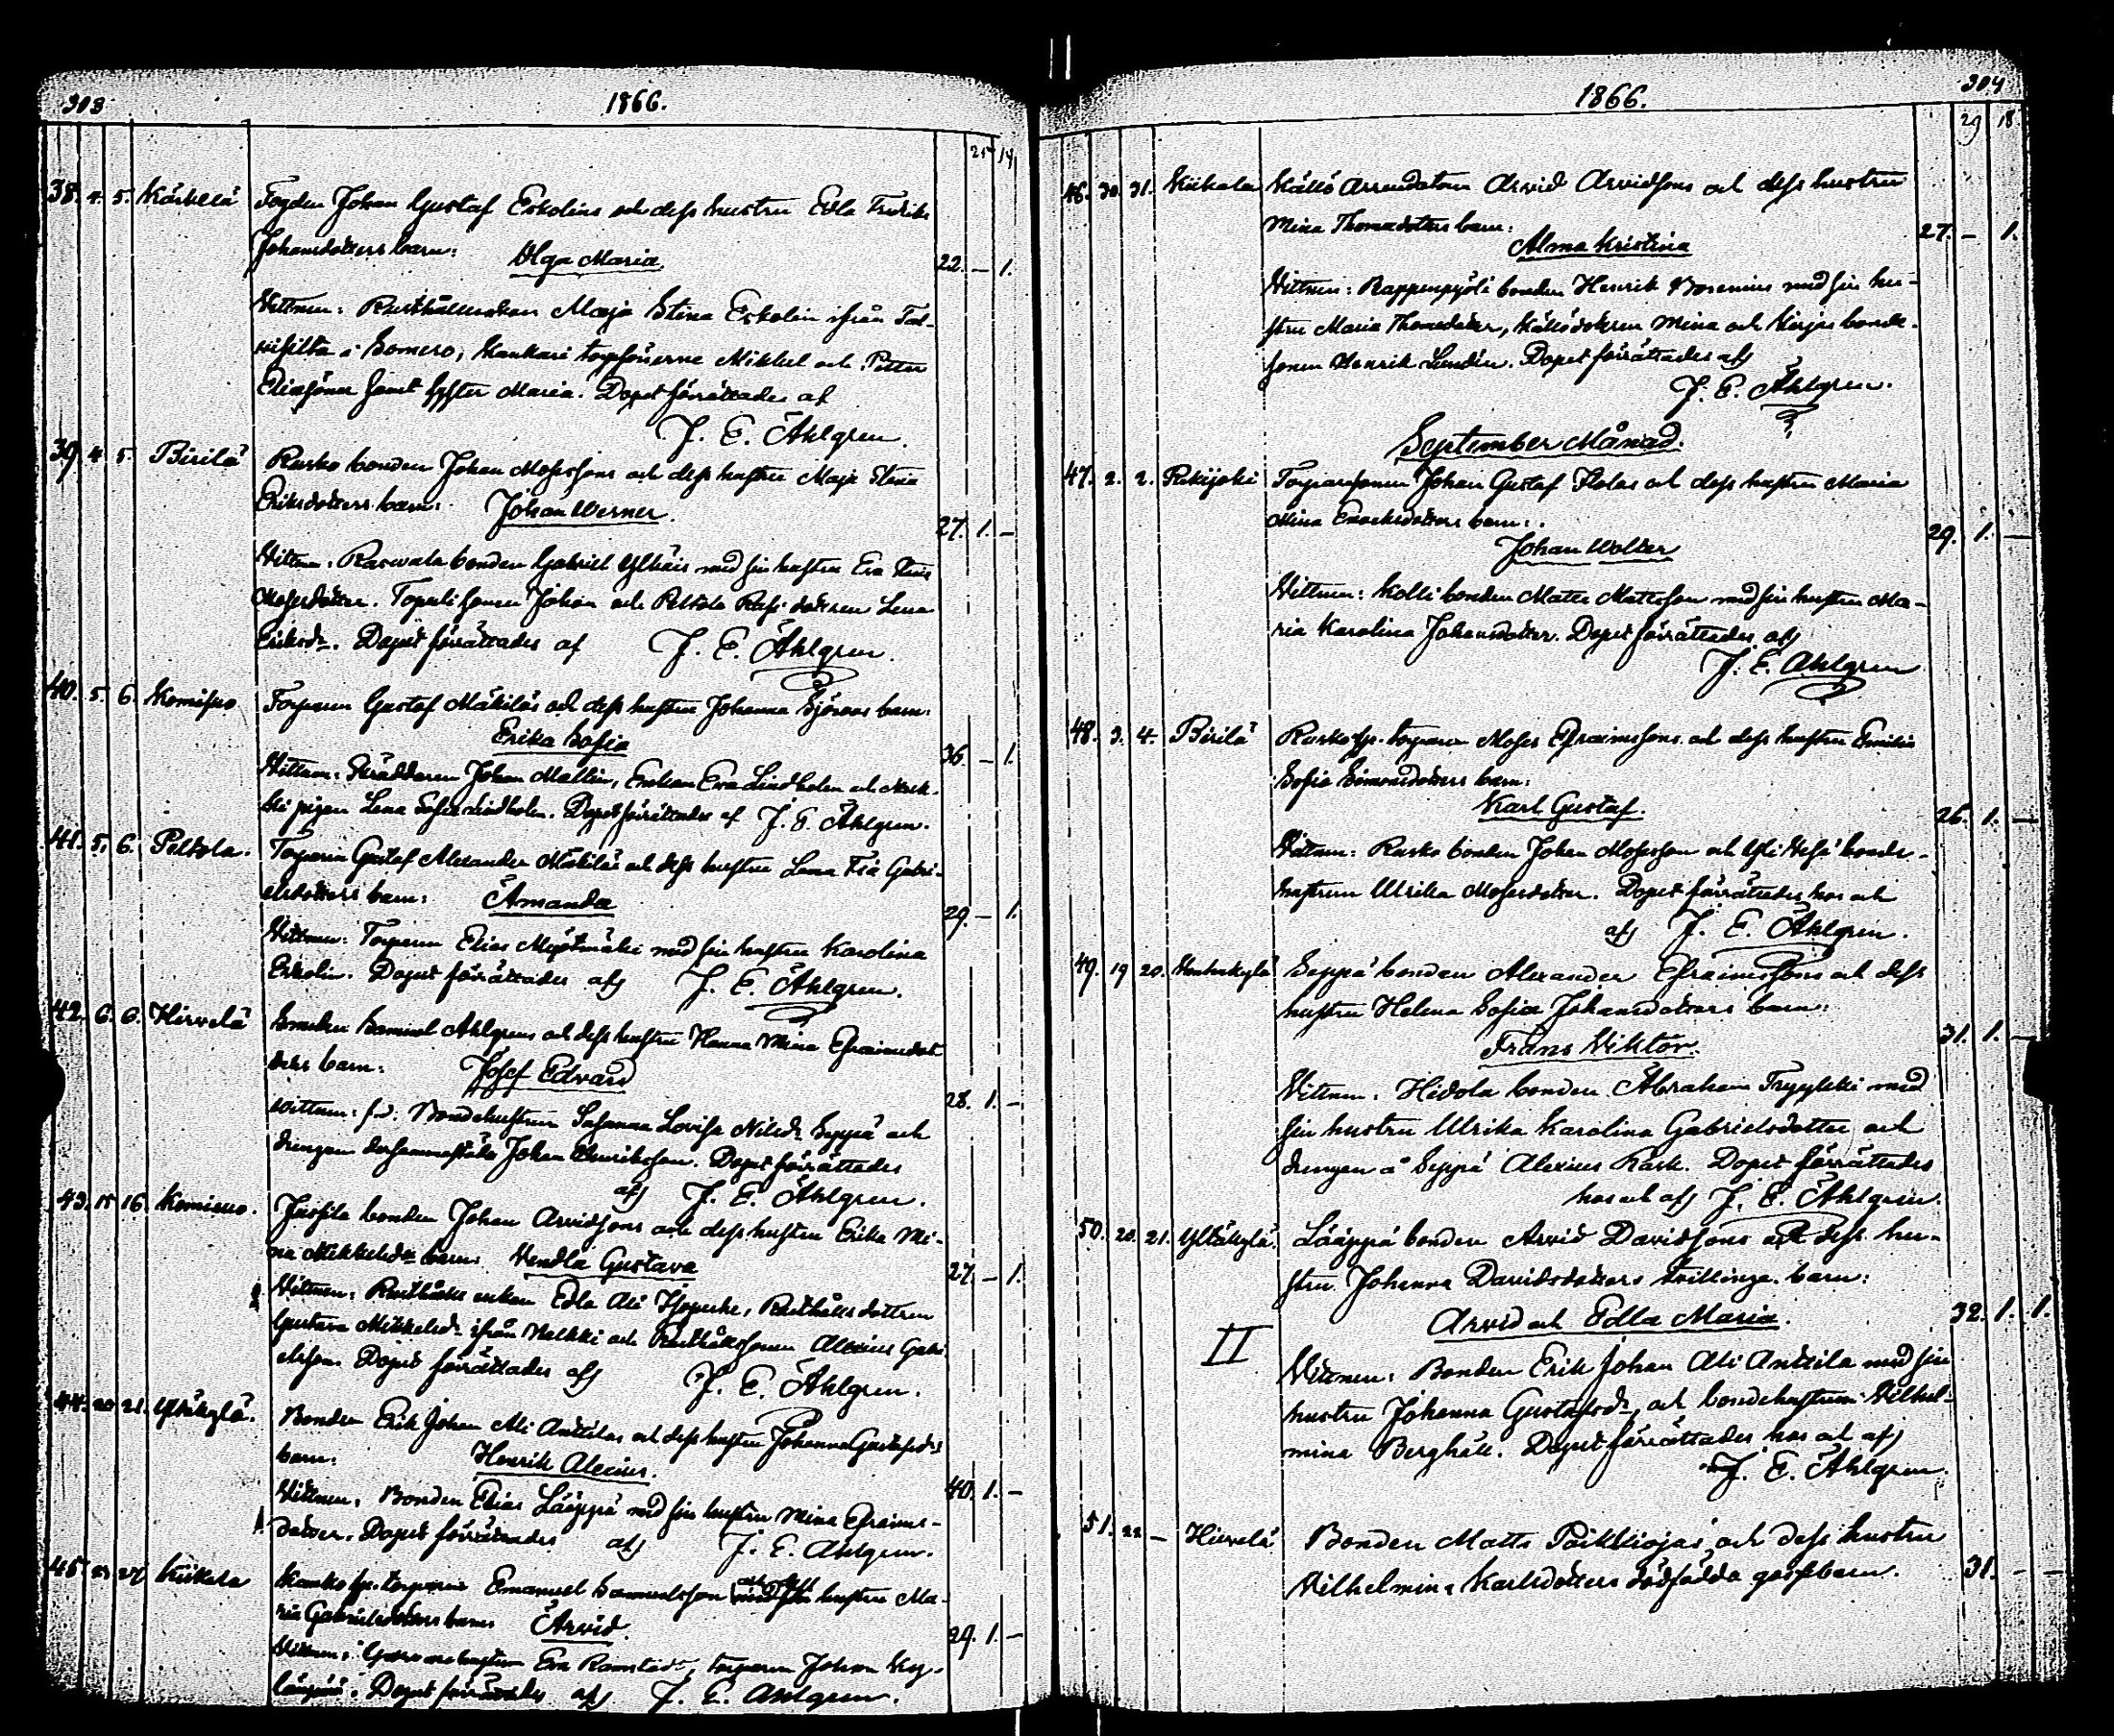 303
1866.
25 14
38. 4. 5. Kärkelä Fogden Johan Gustaf Eskolins och dess hustru Edla Fredrika
Johansdotters barn: Olga Maria 22. – 1.
Vittnen: Rusthållerskan Maja Stina Eskolin ifrån
i Somero, Kankari torpsönerne Mikkel och Petter
Eliesöner samt syster Maria. Dopet förrättades af
J. E. Åhlgren.
39. 4. 5. Pirilä Rasko bonden Johan Mosessons och dess hustru Maja Stina
Eriksdotters barn: Johan Werner. 27. 1. –
Vittnen: bonden Gabriel med sin hustru Eva Stina
Mosesdotter. Topuli sonen Johan och Peltola dottren Lena
Eriksdr. Dopet förrättades af J. E. Åhlgren.
40. 5. 6. Komisuo Torparen Gustaf Mäkiläs och dess hustru Johanna Sjöroos barn:
Erika Sofia 36. – 1.
Vittnen: Skräddaren Johan Mallin, Enkan Eva Lindholm och
pigan Lena Sofia Lindholm. Dopet förrättades af J. E. Åhlgren.
41. 5. 6. Peltola. Torparen Gustaf Alexander Mäkiläs och dess hustru Lena Fia Gabri-
elsdotters barn: Amanda 29. – 1.
Vittnen: Torparen Elias med sin hustru Karolina
Eskolin. Dopet förrättades af J. E. Åhlgren.
42. 6. 6. Hirvelä Smeden Samuel Ahlgrens och dess hustru Hanna Mina Efraimsdot-
ters barn: Josef Edvard 28. 1. –
Vittnen: f.d. Bondehustrun Susanna Lovisa Nilsdr Seppä och
drengen dersammastädes Johan Henriksson. Dopet förrättades
af J. E. Åhlgren.
43. 15 16. Komisuo. Jussila bonden Johan Arvidssons och dess hustru Erika Mi-
na Mikkelsdr barn: Hendla Gustava 27. – 1.
Vittnen: Rusthålls enkan Edla Ali Isoperhe, Rusthålls dottren
Gustava Mikkelsdr ifrån och Rusthållssonen Alexius Gabri-
elsson. Dopet förrättades af J. E. Åhlgren.
44. 20 21. Yltäkylä. Bonden Erik Johan Ali Anttilas och dess hustru Johanna Gustafsdrs
barn: Henrik Alexius. 40. 1. –
Vittnen: Bonden Elias Lääppä med sin hustru Mina Efraims-
dotter. Dopet förrättades af J. E. Ahlgren.
45. 23 24 Kiikala torparen Emanuel Samuelsson och dess hustru Ma-
ria Gabrielsdotters barn Arvid. 29. 1. –
Vittnen: hustrun Eva Ramstedt, torparen Johan
Dopet förrättades af J. E. Ahlgren.
304
1866.
29 18.
46. 30. 31. Kiikala Källö Arrendatorn Arvid Arvidssons och dess hustru
Mina Thomasdotters barn:
Alma Kristina 27. – 1.
Vittnen: bonden Henrik med sin hu-
stru Maria Thomasdotter, Källö dottren Mina och bonde-
sonen Henrik Lundén. Dopet förrättades af
J. E. Åhlgren.
September Månad.
47. 2. 2. Rekijoki Torparesonen Johan Gustaf Flolas och dess hustru Maria
Mina Enocksdotters barn:
Johan Wolter 29. 1. –
Vittnen: Kolli bonden Matts Mattsson med sin hustru Ma-
ria Karolina Johansdotter. Dopet förrättades af
J. E. Ahlgren
48. 3. 4. Pirilä Rasko sp. torparen Moses Efraimssons och dess hustru Emilia
Sofia Simonsdotters barn:
Karl Gustaf. 26. 1. –
Vittnen: Rasko bonden Johan Mosesson och bonde-
hustrun Ulrika Mosesdotter. Dopet förrättades hos och
af J. E. Åhlgren.
49. 19 20. Hanhikylä Seppä bonden Alexander Efraimssons och dess
hustru Helena Sofia Johansdotters barn:
Frans Viktor. 31. 1. –
Vittnen: Hidola bonden Abraham Fryykki med
sin hustru Ulrika Karolina Gabrielsdotter och
drengen å Seppä Alexius Rask. Dopet förrättades
hos och af J. E. Åhlgren.
50. 20. 21. Yltäkylä Lääppä bonden Arvid Davidssons och dess hu-
stru Johanna Davidsdotters tvillinge barn:
Arvid och Edla Maria. 32. 1. 1.
II Vittnen: Bonden Erik Johan Ali Anttila med sin
hustru Johanna Gustafsdr, och bondehustrun Vilhel-
mina Berghäll. Dopet förrättades hos och af
J. E. Åhlgren.
51. 22. – Hirvelä Bonden Matts Poikkiojas och dess hustru
Vilhelmina Karlsdotters dödfödda gossebarn. 31. – –